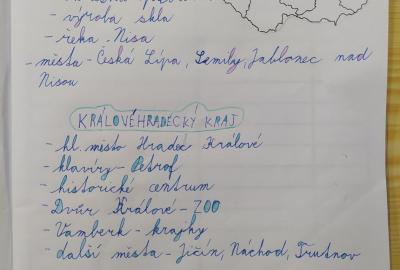 - výroba skla
- řeka Nisa
- města - Česká Lípa, Semily, Jablonec nad
Nisou
KRÁLOVÉHRADECKÝ KRAJ
- hl. město Hradec Králové
- klavíry - Petrof
- historické centrum
- Dvůr Králové - ZOO
- Vamberk - krajky
- další města - Jičín, Náchod, Trutnov